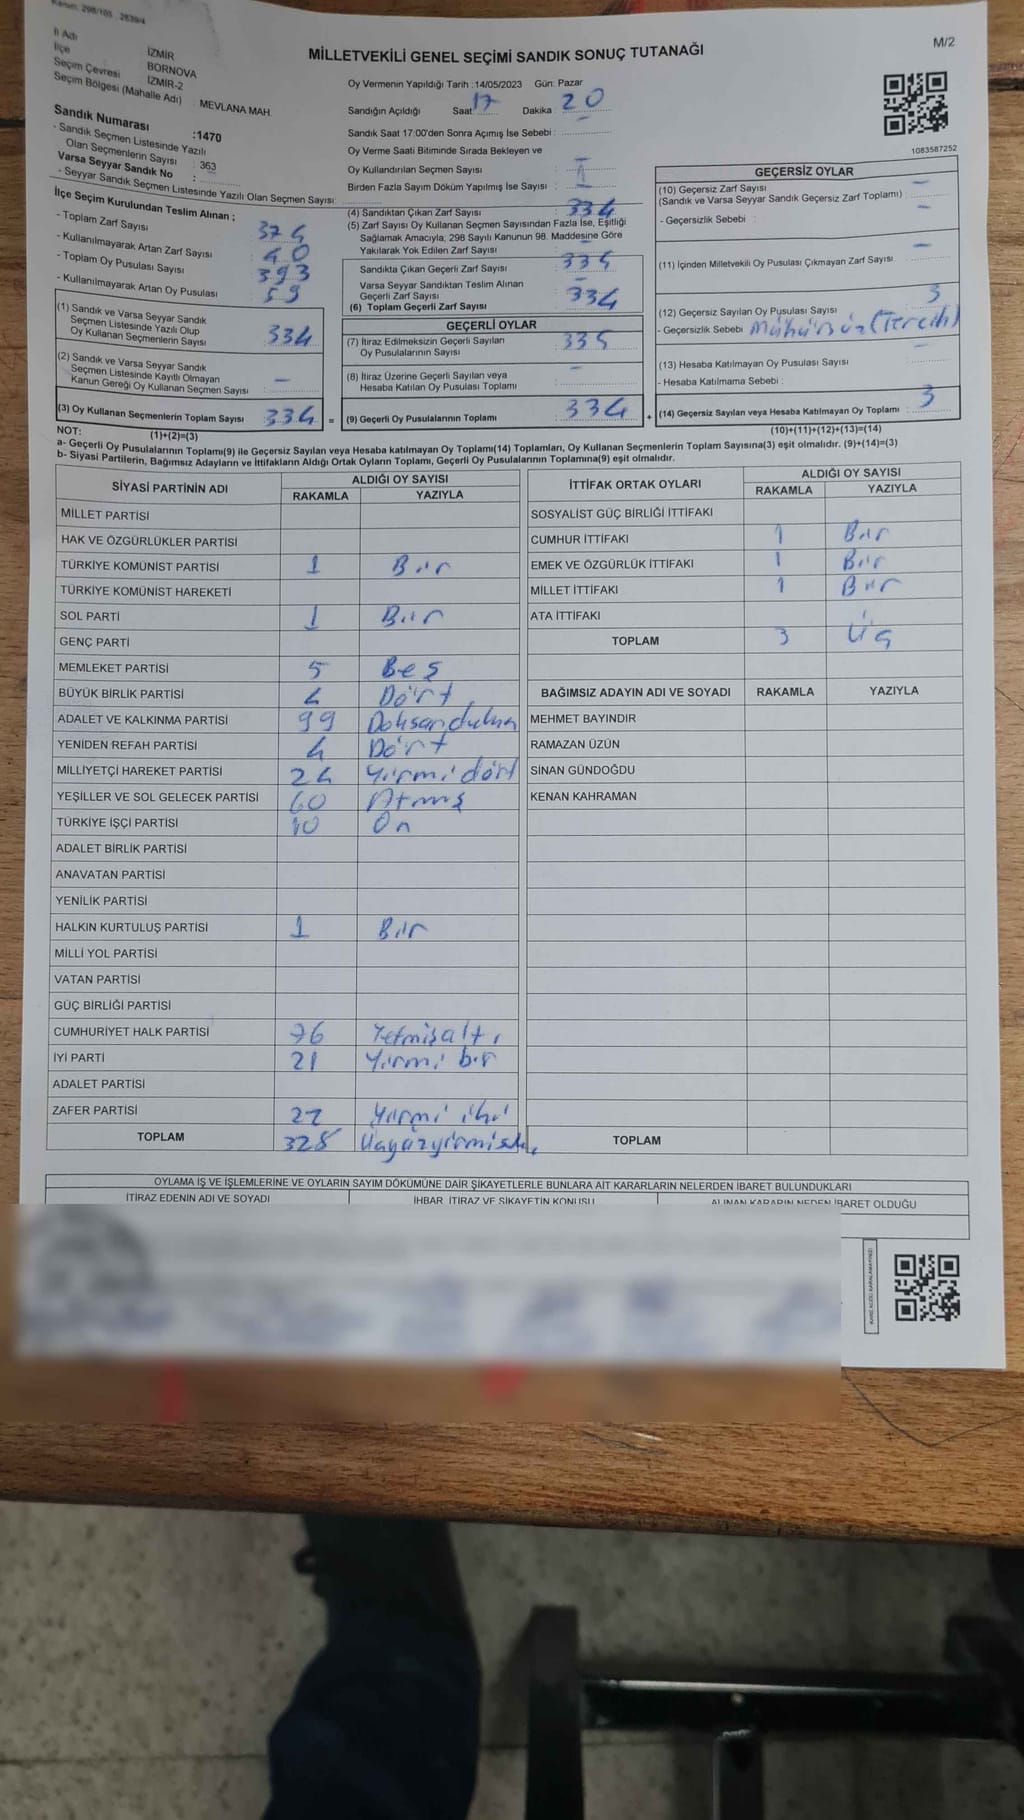 Kanun: 298/105 . 2839/4
İl Adı İZMİR
İlçe BORNOVA
Seçim Çevresi İZMİR-2
Seçim Bölgesi (Mahalle Adı) : MEVLANA MAH.
MİLLETVEKİLİ GENEL SEÇİMİ SANDIK SONUÇ TUTANAĞI
M/2
Oy Vermenin Yapıldığı Tarih :14/05/2023 Gün: Pazar
Sandığın Açıldığı Saat 17 Dakika : 20
Sandık Saat 17:00'den Sonra Açımış İse Sebebi :
Oy Verme Saati Bitiminde Sırada Bekleyen ve
Oy Kullandırılan Seçmen Sayısı : –
Birden Fazla Sayım Döküm Yapılmış İse Sayısı : 1
1083587252
Sandık Numarası :1470
- Sandık Seçmen Listesinde Yazılı
Olan Seçmenlerin Sayısı : 363
Varsa Seyyar Sandık No :
- Seyyar Sandık Seçmen Listesinde Yazılı Olan Seçmen Sayısı:
İlçe Seçim Kurulundan Teslim Alınan ;
- Toplam Zarf Sayısı : 374
- Kullanılmayarak Artan Zarf Sayısı : 40
- Toplam Oy Pusulası Sayısı : 393
- Kullanılmayarak Artan Oy Pusulası : 59
(1) Sandık ve Varsa Seyyar Sandık
Seçmen Listesinde Yazılı Olup
Oy Kullanan Seçmenlerin Sayısı : 334
(2) Sandık ve Varsa Seyyar Sandık
Seçmen Listesinde Kayıtlı Olmayan
Kanun Gereği Oy Kullanan Seçmen Sayısı : –
(3) Oy Kullanan Seçmenlerin Toplam Sayısı : 334 =
(4) Sandıktan Çıkan Zarf Sayısı : 334
(5) Zarf Sayısı Oy Kullanan Seçmen Sayısından Fazla İse, Eşitliği
Sağlamak Amacıyla, 298 Sayılı Kanunun 98. Maddesine Göre
Yakılarak Yok Edilen Zarf Sayısı : –
Sandıkta Çıkan Geçerli Zarf Sayısı : 334
Varsa Seyyar Sandıktan Teslim Alınan
Geçerli Zarf Sayısı : –
(6) Toplam Geçerli Zarf Sayısı : 334
GEÇERLİ OYLAR
(7) İtiraz Edilmeksizin Geçerli Sayılan
Oy Pusulalarının Sayısı :
(8) İtiraz Üzerine Geçerli Sayılan veya
Hesaba Katılan Oy Pusulası Toplamı : –
(9) Geçerli Oy Pusulalarının Toplamı : 334 +
GEÇERSİZ OYLAR
(10) Geçersiz Zarf Sayısı –
(Sandık ve Varsa Seyyar Sandık Geçersiz Zarf Toplamı) :
- Geçersizlik Sebebi : –
(11) İçinden Milletvekili Oy Pusulası Çıkmayan Zarf Sayısı : –
(12) Geçersiz Sayılan Oy Pusulası Sayısı : 3
- Geçersizlik Sebebi :
(13) Hesaba Katılmayan Oy Pusulası Sayısı : –
- Hesaba Katılmama Sebebi :
(14) Geçersiz Sayılan veya Hesaba Katılmayan Oy Toplamı : 3
NOT: (1)+(2)=(3)
(10)+(11)+(12)+(13)=(14)
a- Geçerli Oy Pusulalarının Toplamı(9) ile Geçersiz Sayılan veya Hesaba katılmayan Oy Toplamı(14) Toplamları, Oy Kullanan Seçmenlerin Toplam Sayısına(3) eşit olmalıdır. (9)+(14)=(3)
b- Siyasi Partilerin, Bağımsız Adayların ve İttifakların Aldığı Ortak Oyların Toplamı, Geçerli Oy Pusulalarının Toplamına(9) eşit olmalıdır.
SİYASİ PARTİNİN ADI ALDIĞI OY SAYISI
RAKAMLA YAZIYLA
MİLLET PARTİSİ
HAK VE ÖZGÜRLÜKLER PARTİSİ
TÜRKİYE KOMÜNİST PARTİSİ 1 Bir
TÜRKİYE KOMÜNİST HAREKETİ
SOL PARTİ 1 Bir
GENÇ PARTİ
MEMLEKET PARTİSİ 5 Beş
BÜYÜK BİRLİK PARTİSİ 4 Dört
ADALET VE KALKINMA PARTİSİ 99 Doksandokuz
YENİDEN REFAH PARTİSİ 4 Dört
MİLLİYETÇİ HAREKET PARTİSİ 24 Yirmi dört
YEŞİLLER VE SOL GELECEK PARTİSİ 60 Atmış
TÜRKİYE İŞÇİ PARTİSİ 10 On
ADALET BİRLİK PARTİSİ
ANAVATAN PARTİSİ
YENİLİK PARTİSİ
HALKIN KURTULUŞ PARTİSİ 1 Bir
MİLLİ YOL PARTİSİ
VATAN PARTİSİ
GÜÇ BİRLİĞİ PARTİSİ
CUMHURİYET HALK PARTİSİ 76 Yetmişaltı
İYİ PARTİ 21 Yirmi bir
ADALET PARTİSİ
ZAFER PARTİSİ 22 Yirmi iki
TOPLAM 328
İTTİFAK ORTAK OYLARI ALDIĞI OY SAYISI
RAKAMLA YAZIYLA
SOSYALİST GÜÇ BİRLİĞİ İTTİFAKI
CUMHUR İTTİFAKI 1 Bir
EMEK VE ÖZGÜRLÜK İTTİFAKI 1 Bir
MİLLET İTTİFAKI 1 Bir
ATA İTTİFAKI
TOPLAM 3 Üç
BAĞIMSIZ ADAYIN ADI VE SOYADI RAKAMLA YAZIYLA
MEHMET BAYINDIR
RAMAZAN ÜZÜN
SİNAN GÜNDOĞDU
KENAN KAHRAMAN
TOPLAM
OYLAMA İŞ VE İŞLEMLERİNE VE OYLARIN SAYIM DÖKÜMÜNE DAİR ŞİKAYETLERLE BUNLARA AİT KARARLARIN NELERDEN İBARET BULUNDUKLARI
İTİRAZ EDENİN ADI VE SOYADI İHBAR, İTİRAZ VE ŞİKAYETİN KONUSU ALINAN KARARIN NEDEN İBARET OLDUĞU